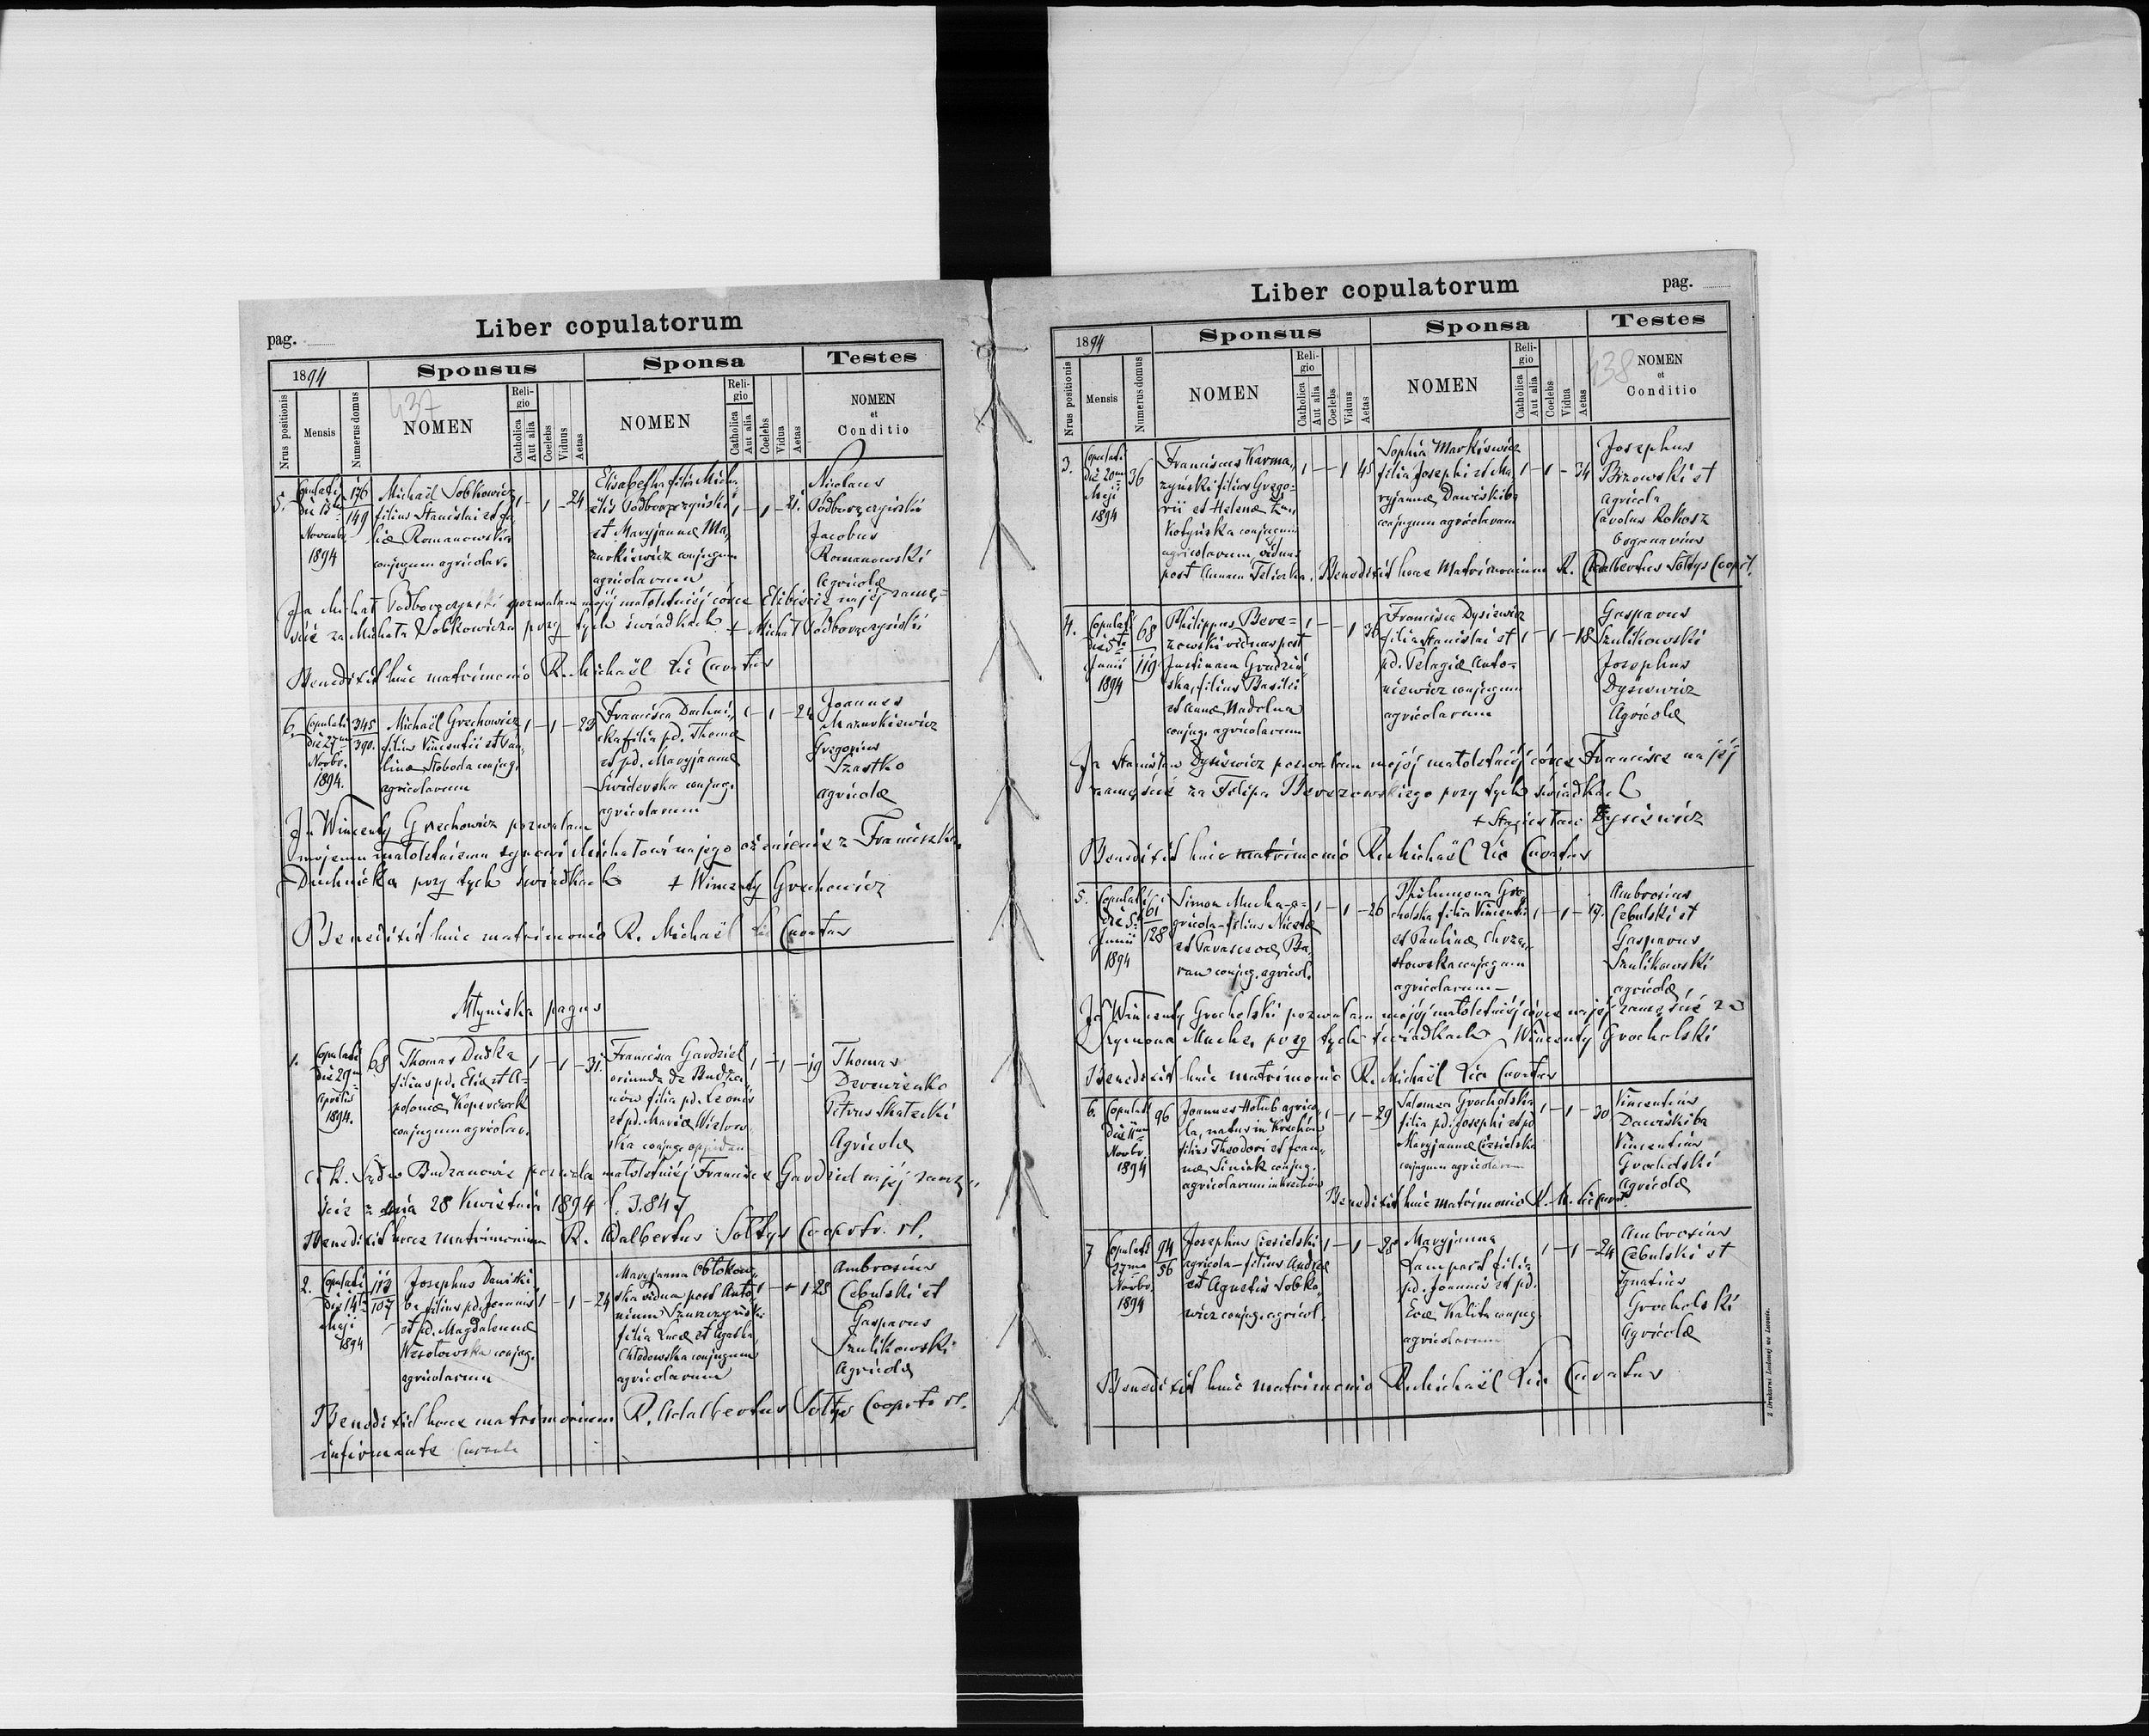 Liber copulatorum
pag.
1894
Sponsus
Sponsa
Testes
Nrus positionis
Mensis
Numerus domus
437
NOMEN
Religio
Catholica
Aut alia
Coelebs
Viduus
Aetas
NOMEN
Religio
Catholica
Aut alia
Coelebs
Vidua
Aetas
NOMEN
et
Conditio
5.
Copulati
die 13
Novembr.
1894
176
149
Michaël Sobkowicz
filius Stanislai et
Romanowska
conjugum agricolar.
1 - 1 - 24
Elisabetha filia Micha
ëlis Podborączyński
et Maryjannæ Ma,
zurkiewicz conjugum
agricolarum
1 - 1 - 21.
Nicolaus
Podborączyński
Jacobus
Romanowski
Agricolæ
Ja Michał Podborączyński pozwalam mojéj małoletniéj córce Elżbiecie na jéj zamę,=
ście za Michała Sobkowicza przy tych świadkach + Michał Podborączyński
Benedixit huic matrimonio R. Michaël Lic Curatus
6.
Copulati
die 27
Novbr.
1894.
345
390.
Michaël Grechowicz
filius Vincentii et Pau,
linæ Słoboda conjug.
agricolarum
1 - 1 - 23
Francisca Duchni,
cka filia pd. Thomæ
et pd. Maryjannæ
Świderska conjug.
agricolarum
1 - 1 - 24
Joannes
Mazurkiewicz
Gregorius
Szastko
agricolæ
Ja Wincenty Grechowicz pozwalam
mojemu małoletniemu synowi Michałowi na jego ożenienie z Franciszką
Duchnicką przy tych świadkach + Wincenty Grechowicz
Benedixit huic matrimonio R. Michaël Lic Curatus
Młyniska pagus
1.
Copulati
die 29
Aprilis
1894.
68
Thomas Duška
filius pd. Eliæ et A-
poloniæ
conjugum agricolar.
1 - 1 - 31.
Francisca Gardziel
oriunda de Budza,
nów filia pd. Leonis
et pd. Mariæ
conjug. oppidan
1 - 1 - 19
Thomas
Derewienko
Petrus Skałecki
Agricolæ
C. k. Sąd w Budzanowie pozwala małoletniéj Francisce Gardziel na jéj zamę,,
ście z dnia 28 Kwietnia 1894 l. 3.847
Benedixit hocce matrimonium R. Adalbertus Sołtys Cooprtr. rl.
2.
Copulati
die 14t
Maji
1894
113
107
Josephus Dawiski,
ba filius pd. Joannis
et pd. Magdalenæ
Wesołowska conjug.
agricolarum
1 - 1 - 24
Maryjanna Obłokow,
ska vidua post Anto,
nium
filia Lucæ et Agathæ
Chłodowska conjugum
agricolarum
1 - - 1 28
Ambrosius
Cebulski et
Gasparus
Szulikowski
Agricolæ
Benedixit hocce matrimonium R. Adalbertus Sołtys Cooprtr rl.
infirmante Curato
Liber copulatorum
pag.
1894
Sponsus
Sponsa
Testes
Nrus positionis
Mensis
Numerus domus
NOMEN
Religio
Catholica
Aut alia
Coelebs
Viduus
Aetas
NOMEN
Religio
Catholica
Aut alia
Coelebs
Vidua
Aetas
438
NOMEN
et
Conditio
3.
Copulati
die 20
Maji
1894
36
Franciscus Karma,,
zyński filius Grego=
rii et Helenæ
conjugum
agricolarum, viduus
post Annam
1 - - 1 45
Sophia Markiewicz
filia Josephi et Ma,
ryjannæ Dawiskiba
conjugum agricolarum
1 - 1 - 34
Josephus
Brzowski et
agricola
Carolus Rokosz
Benedixit hocce Matrimonium R. Adalbertus Sołtys Cooprt.
4.
Copulati
die 5ta
Junii
1894
68
119
Philippus Bere=
zowski viduus post
Justinam Grudziń
ska, filius Basilii
et Annæ Nadolna
conjug. agricolarum
1 - - 1 36
Francisca Dysiewicz
filia Stanislai et
pd. Pelagiæ Anto=
niewicz conjugum
agricolarum
1 - 1 - 18
Gasparus
Szulikowski
Josephus
Dysiewicz
Agricolæ
Ja Stanisław Dysiewicz pozwalam mojéj małoletniéj córce Francisce na jéj
zamęście za Filipa Berezowskiego przy tych świadkach
+ Stanisław Dysiewicz
Benedixit huic matrimonio R. Michaël Lic Curatus
5.
Copulati
die 5
Junii
1894
61
128
Simon Mucha a=
gricola filius Nicetæ
et Parascevæ Ba,
ran conjug. agricol.
1 - 1 - 26
Philumena Gro
cholska filia Vincentii
et Paulinæ Chrza,
stowska conjugum
agricolarum
1 - 1 - 17.
Ambrosius
Cebulski et
Gasparus
Szulikowski
agricolæ
Ja Wincenty Grocholski pozwalam mojéj małoletniéj córce na jéj zamęście za
Szymona Muchę, przy tych świadkach Wincenty Grocholski
Benedixit huic matrimonio R. Michaël Lic Curatus
6.
Copulati
die 11
Novbr.
1894
96
Joannes Hołub agrico,
la, natus in
filius Theodori et Joan,
næ Siniak conjug.
agricolarum in
1 - 1 - 29
Salomea Grocholska
filia pd. Josephi et pd
Maryjannæ Ciesielska
conjugum agricolarum
1 - 1 - 30
Vincentius
Dawiskiba
Vincentius
Grocholski
Agricolæ
Benedixit huic matrimonio R. M. Lic Curat.
7
Copulati
27ma
Novbr.
1894
94
56
Josephus Ciesielski
agricola filius Andreæ
et Agnetis Sobko,
wicz conjug. agricol.
1 - 1 - 28
Maryjanna
Lampart filia
pd. Joannis et pd.
Evæ Kalita conjug.
agricolarum
1 - 1 - 24
Ambrosius
Cebulski et
Ignatius
Grocholski
Agricolæ
Benedixit huic matrimonio R. Michaël Lic Curatus
Z Drukarni Ludowej we Lwowie.